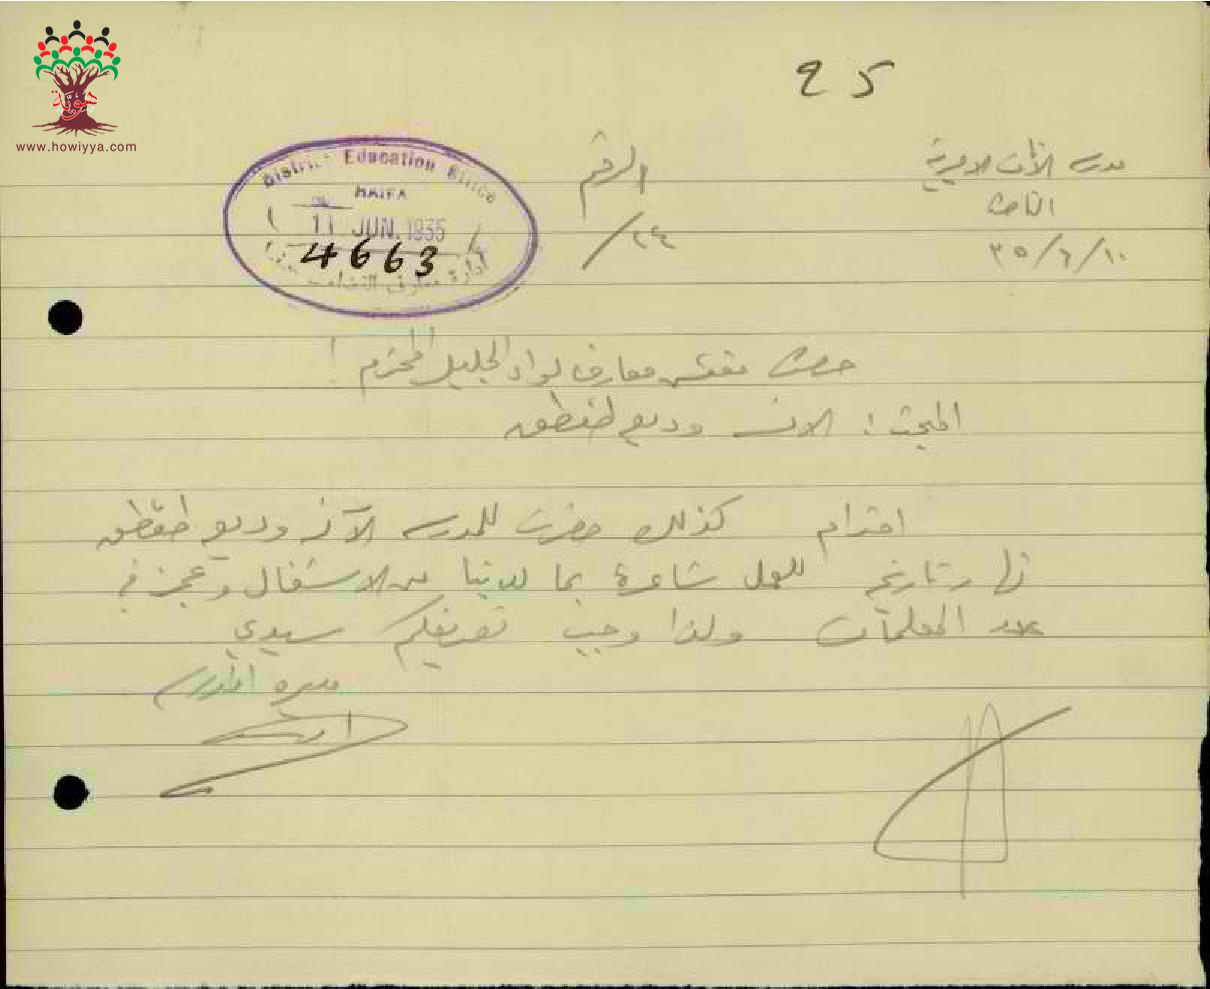 هوية
www.howiyya.com
25
مدرسة الاناث الاميرية
الناصرة
١٠/٦/٣٥
الرقم
٢٤/
District Education Office
HAIFA
11 JUN. 1935
4663
ادارة معارف
حضرة مفتش معارف لواء الجليل المحترم!
المبحث: الآنسة وديعة طقطق
احترام كذلك حضرت للمدرسة الآنسة وديعة طقطق
للعمل شاعرة بما لدينا من الاشغال وعجز في
عدد المعلمات ولذا وجب تعريفكم سيدي
مديرة المدرسة